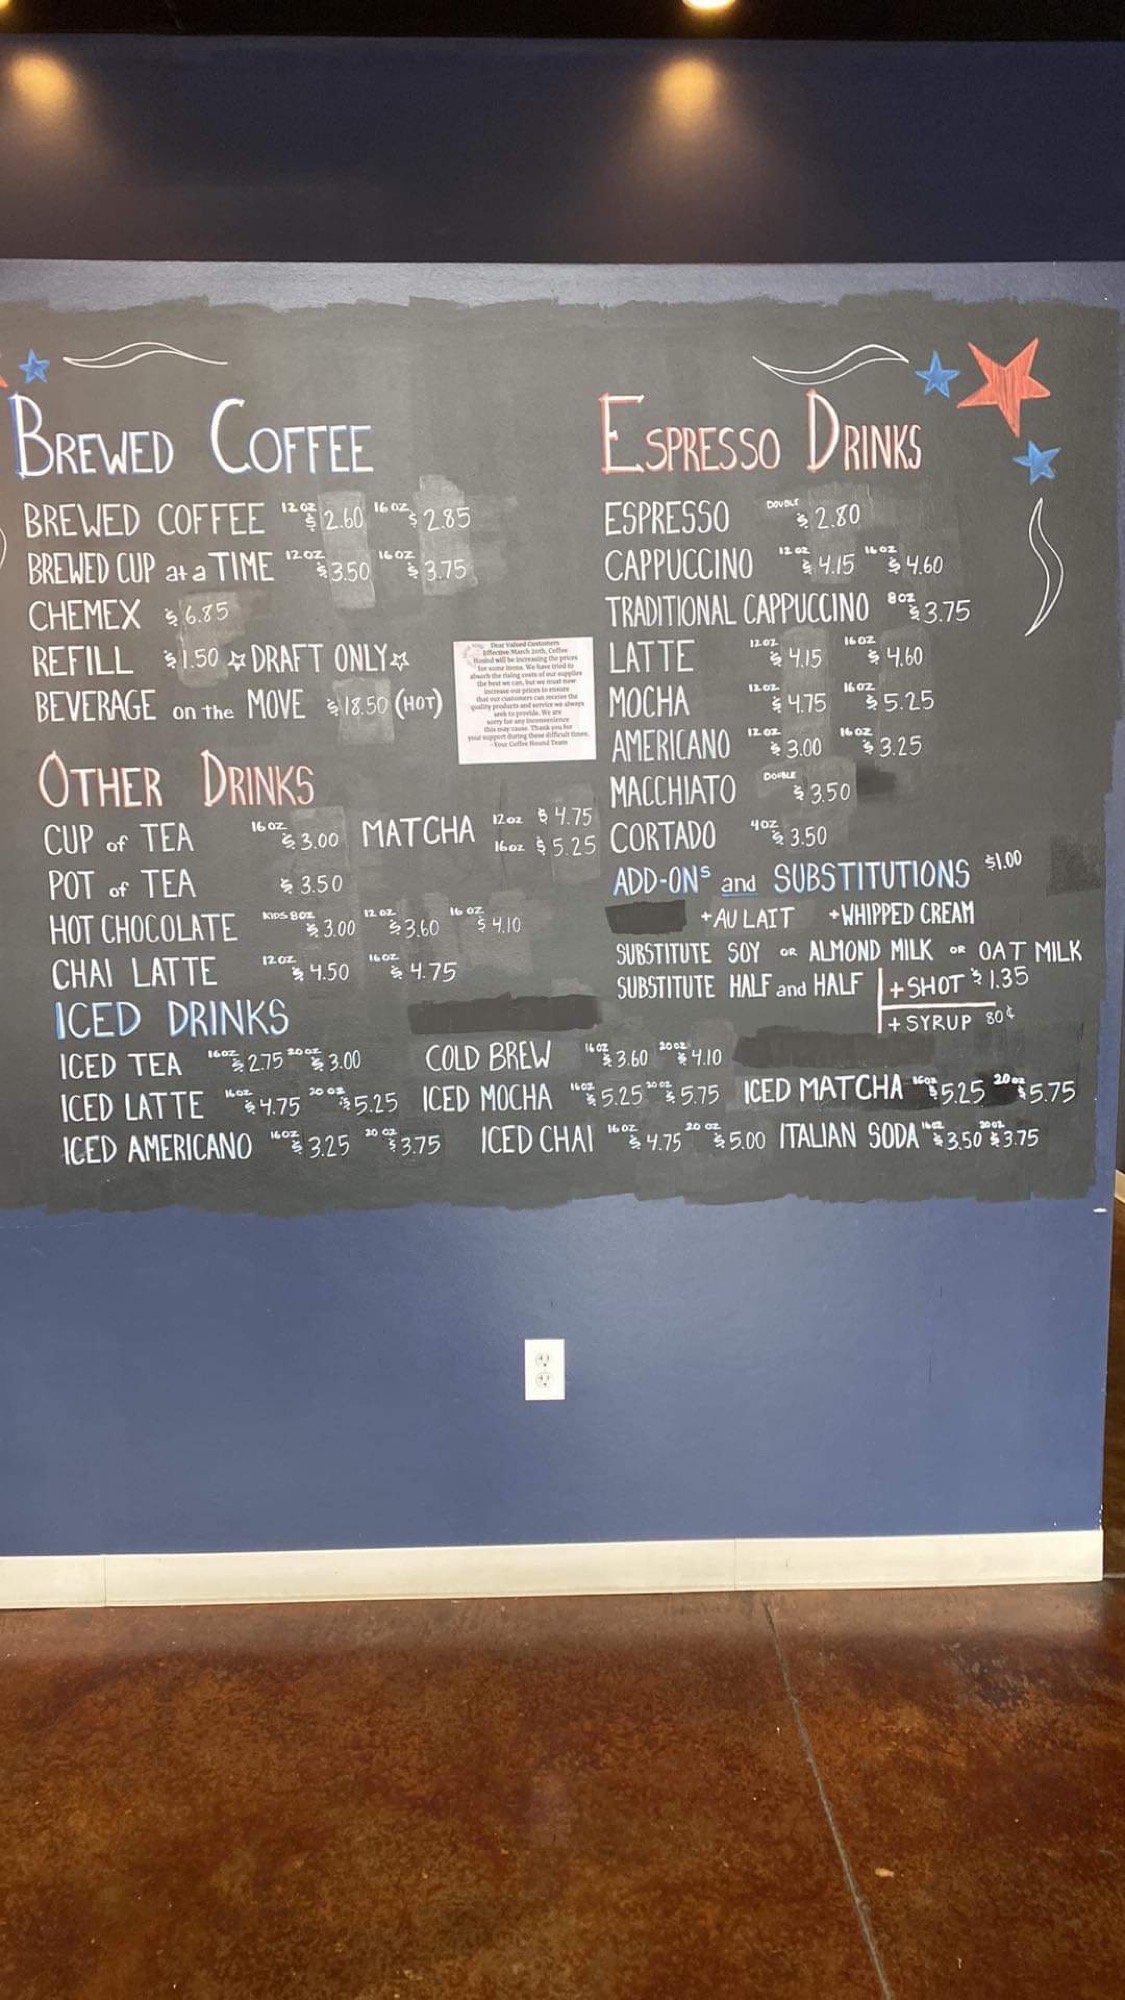 BREWED COFFEE
BREWED COFFEE 12 OZ $2.60 16 OZ $2.85
BREWED CUP at a TIME 12 OZ $3.50 16 OZ $3.75
CHEMEX $6.85
REFILL $1.50 ☆DRAFT ONLY☆
BEVERAGE on the MOVE $18.50 (HOT)
Dear Valued Customers
Effective March 20th, Coffee
Hound will be increasing the prices
for some items. We have tried to
absorb the rising costs of our supplies
the best we can, but we must now
increase our prices to ensure
that our customers can receive the
quality products and service we always
seek to provide. We are
sorry for any inconvenience
this may cause. Thank you for
your support during these difficult times.
-Your Coffee Hound Team
OTHER DRINKS
CUP of TEA 16 OZ $3.00
POT of TEA $3.50
MATCHA 12oz $4.75
16oz $5.25
HOT CHOCOLATE KIDS 8OZ $3.00 12 OZ $3.60 16 OZ $4.10
CHAI LATTE 12OZ $4.50 16OZ $4.75
ESPRESSO DRINKS
ESPRESSO DOUBLE $2.80
CAPPUCCINO 12 OZ $4.15 16 OZ $4.60
TRADITIONAL CAPPUCCINO 8OZ $3.75
LATTE 12OZ $4.15 16OZ $4.60
MOCHA 12OZ $4.75 16OZ $5.25
AMERICANO 12 OZ $3.00 16 OZ $3.25
MACCHIATO DOUBLE $3.50
CORTADO 4OZ $3.50
ADD-ONS and SUBSTITUTIONS $1.00
+AU LAIT +WHIPPED CREAM
SUBSTITUTE SOY OR ALMOND MILK OR OAT MILK
SUBSTITUTE HALF and HALF
+SHOT $1.35
+SYRUP 80¢
ICED DRINKS
ICED TEA 16OZ $2.75 20OZ $3.00 COLD BREW 16OZ $3.60 20OZ $4.10
ICED LATTE 16OZ $4.75 20 OZ $5.25 ICED MOCHA 16OZ $5.25 20OZ $5.75 ICED MATCHA 16OZ $5.25 20OZ $5.75
ICED AMERICANO 16OZ $3.25 20 OZ $3.75 ICED CHAI 16OZ $4.75 20 OZ $5.00 ITALIAN SODA 16OZ $3.50 20OZ $3.75